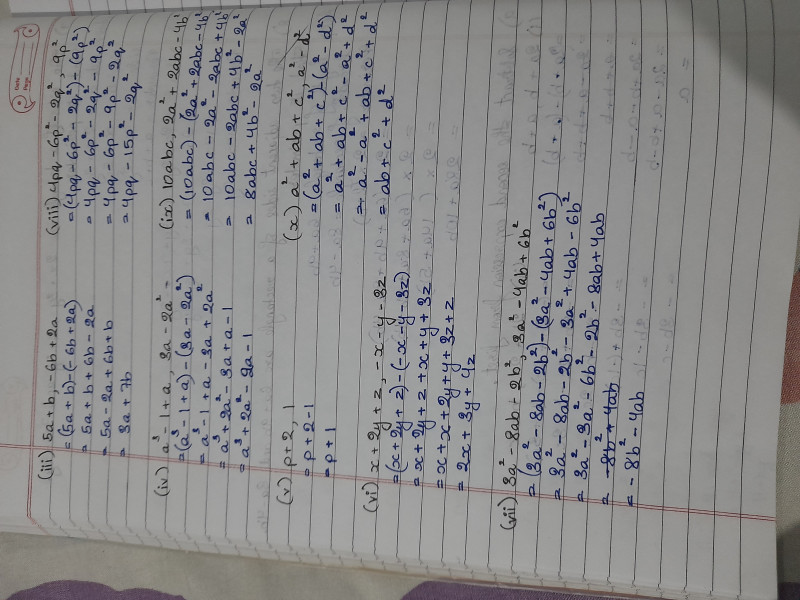 (iii) 5a + b, -6b + 2a
= (5a + b) - (-6b + 2a)
= 5a + b + 6b - 2a
= 5a - 2a + 6b + b
= 3a + 7b
(iv) a³ - 1 + a, 3a - 2a² =
= (a³ - 1 + a) - (3a - 2a²)
= a³ - 1 + a - 3a + 2a²
= a³ + 2a² - 3a + a - 1
= a³ + 2a² - 2a - 1
(v) p + 2, 1
= p + 2 - 1
= p + 1
(vi) x + 2y + z, -x - y - 3z
= (x + 2y + z) - (-x - y - 3z)
= x + 2y + z + x + y + 3z
= x + x + 2y + y + 3z + z
= 2x + 3y + 4z
(vii) 3a² - 8ab - 2b², 3a² - 4ab + 6b²
= (3a² - 8ab - 2b²) - (3a² - 4ab + 6b²)
= 3a² - 8ab - 2b² - 3a² + 4ab - 6b²
= 3a² - 3a² - 6b² - 2b² - 8ab + 4ab
= -8b² + 4ab
= -8b² - 4ab
Date
Page
(viii) 4pq - 6p² - 2q², 9p²
= (4pq - 6p² - 2q²) - (9p²)
= 4pq - 6p² - 2q² - 9p²
= 4pq - 6p² - 9p² - 2q²
= 4pq - 15p² - 2q²
(ix) 10abc, 2a² + 2abc - 4b²
= (10abc) - (2a² + 2abc - 4b²
= 10abc - 2a² - 2abc + 4b²
= 10abc - 2abc + 4b² - 2a²
= 8abc + 4b² - 2a²
(x) a² + ab + c², a² - d²
= (a² + ab + c²) - (a² - d²)
= a² + ab + c² - a² + d²
= a² - a² + ab + c² + d²
= ab + c² + d²